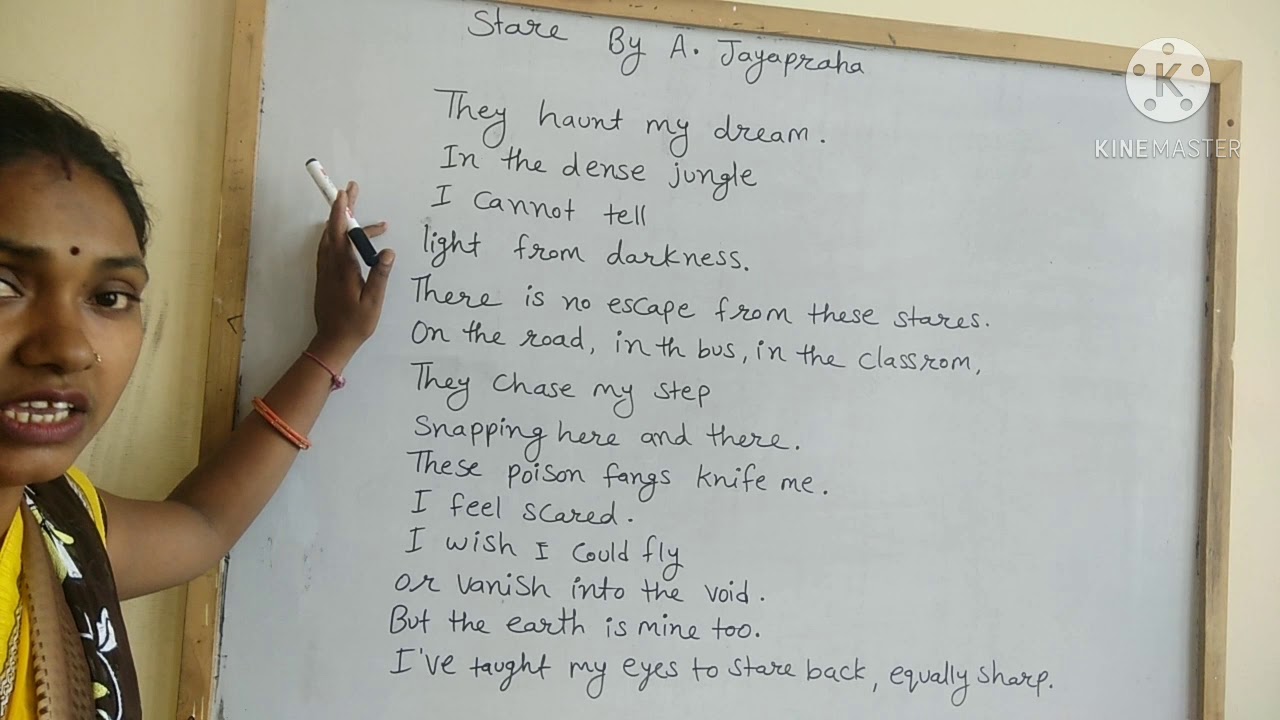 Stare By A. Jayapraha
They haunt my dream.
In the dense jungle
I cannot tell
light from darkness.
There is no escape from these stares.
On the road, in th bus, in the classrom,
They chase my step
Snapping here and there.
These poison fangs knife me.
I feel scared.
I wish I could fly
or vanish into the void.
But the earth is mine too.
I've taught my eyes to stare back, equally sharp.
K
KINEMASTER